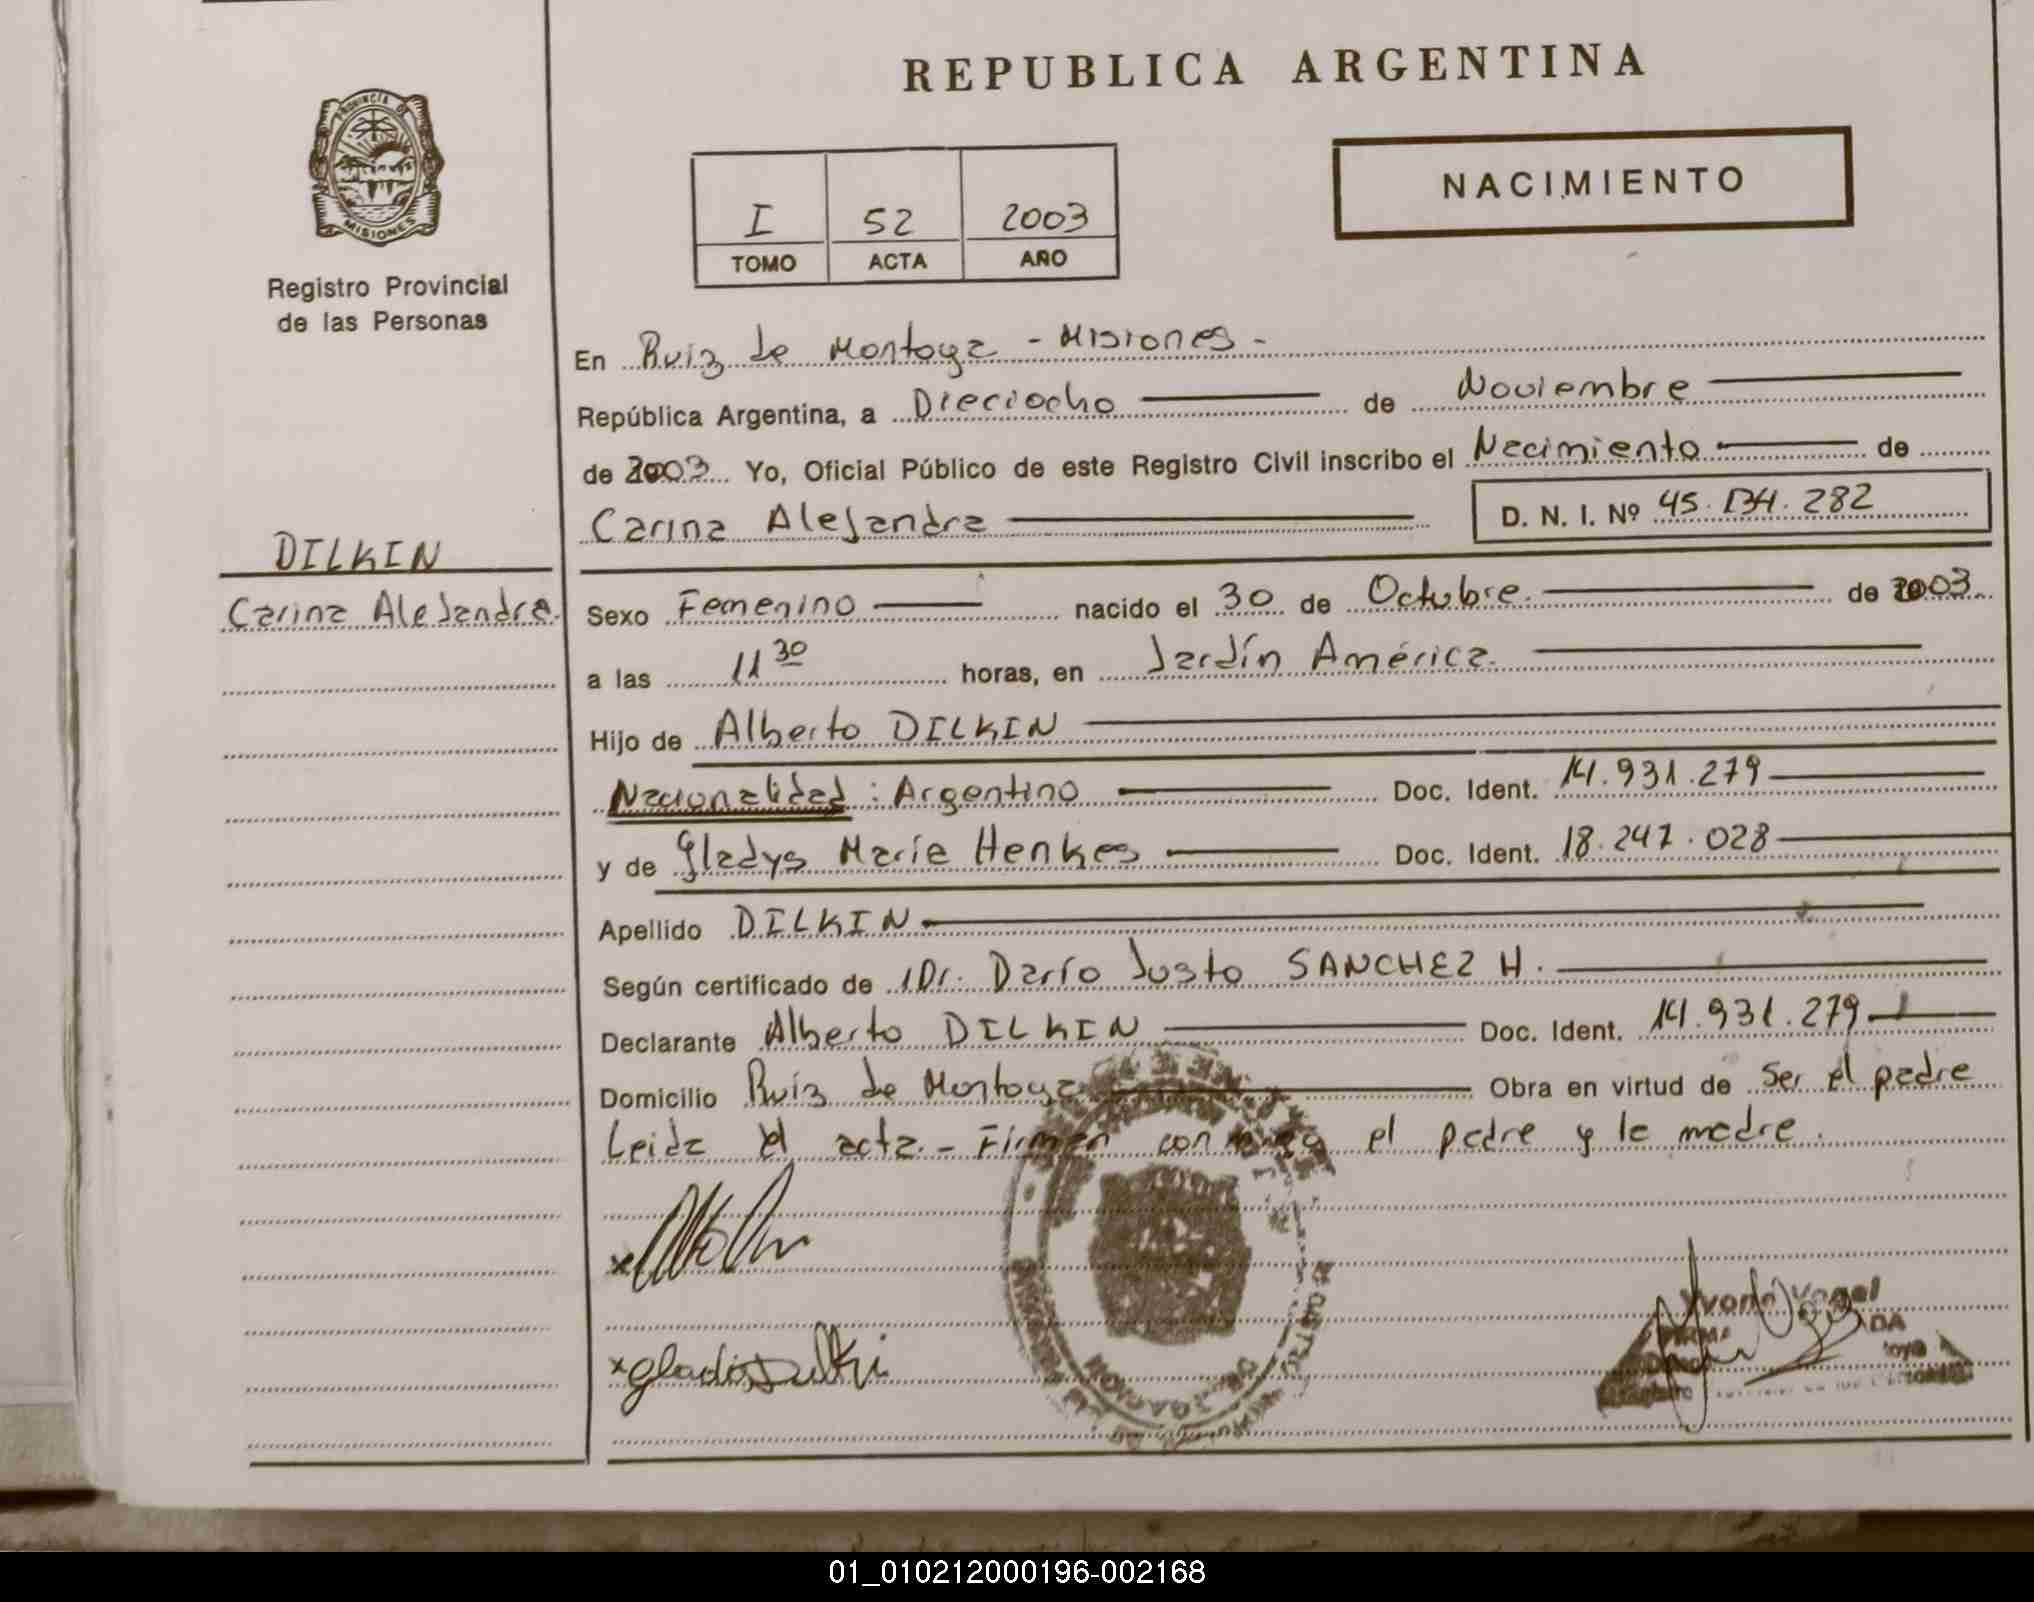 REPUBLICA ARGENTINA
PROVINCIA DE
MISIONES
Registro Provincial
de las Personas
NACIMIENTO
I 52 2003
TOMO ACTA AÑO
En Ruiz de Montoya - Misiones -
República Argentina, a Dieciocho de Noviembre
de 2003 Yo, Oficial Público de este Registro Civil inscribo el Nacimiento de
Carina Alejandra D. N. I. Nº 45. 134. 282
DILKIN
Carina Alejandra.
Sexo Femenino nacido el 30 de Octubre. de 2003
a las 11 30 horas, en Jardín América.
Hijo de Alberto DILKIN
Nacionalidad : Argentino Doc. Ident. 14.931.279
y de Gladys María Henkes Doc. Ident. 18.247.028
Apellido DILKIN
Según certificado de Dr. Darío Justo SANCHEZ H.
Declarante Alberto DILKIN Doc. Ident. 14.931.279
Domicilio Ruiz de Montoya Obra en virtud de Ser el padre
Leida el acta. - Firman conmigo el padre y la madre.
x
x gladis Dilki
Yvone Vogel
01_010212000196-002168